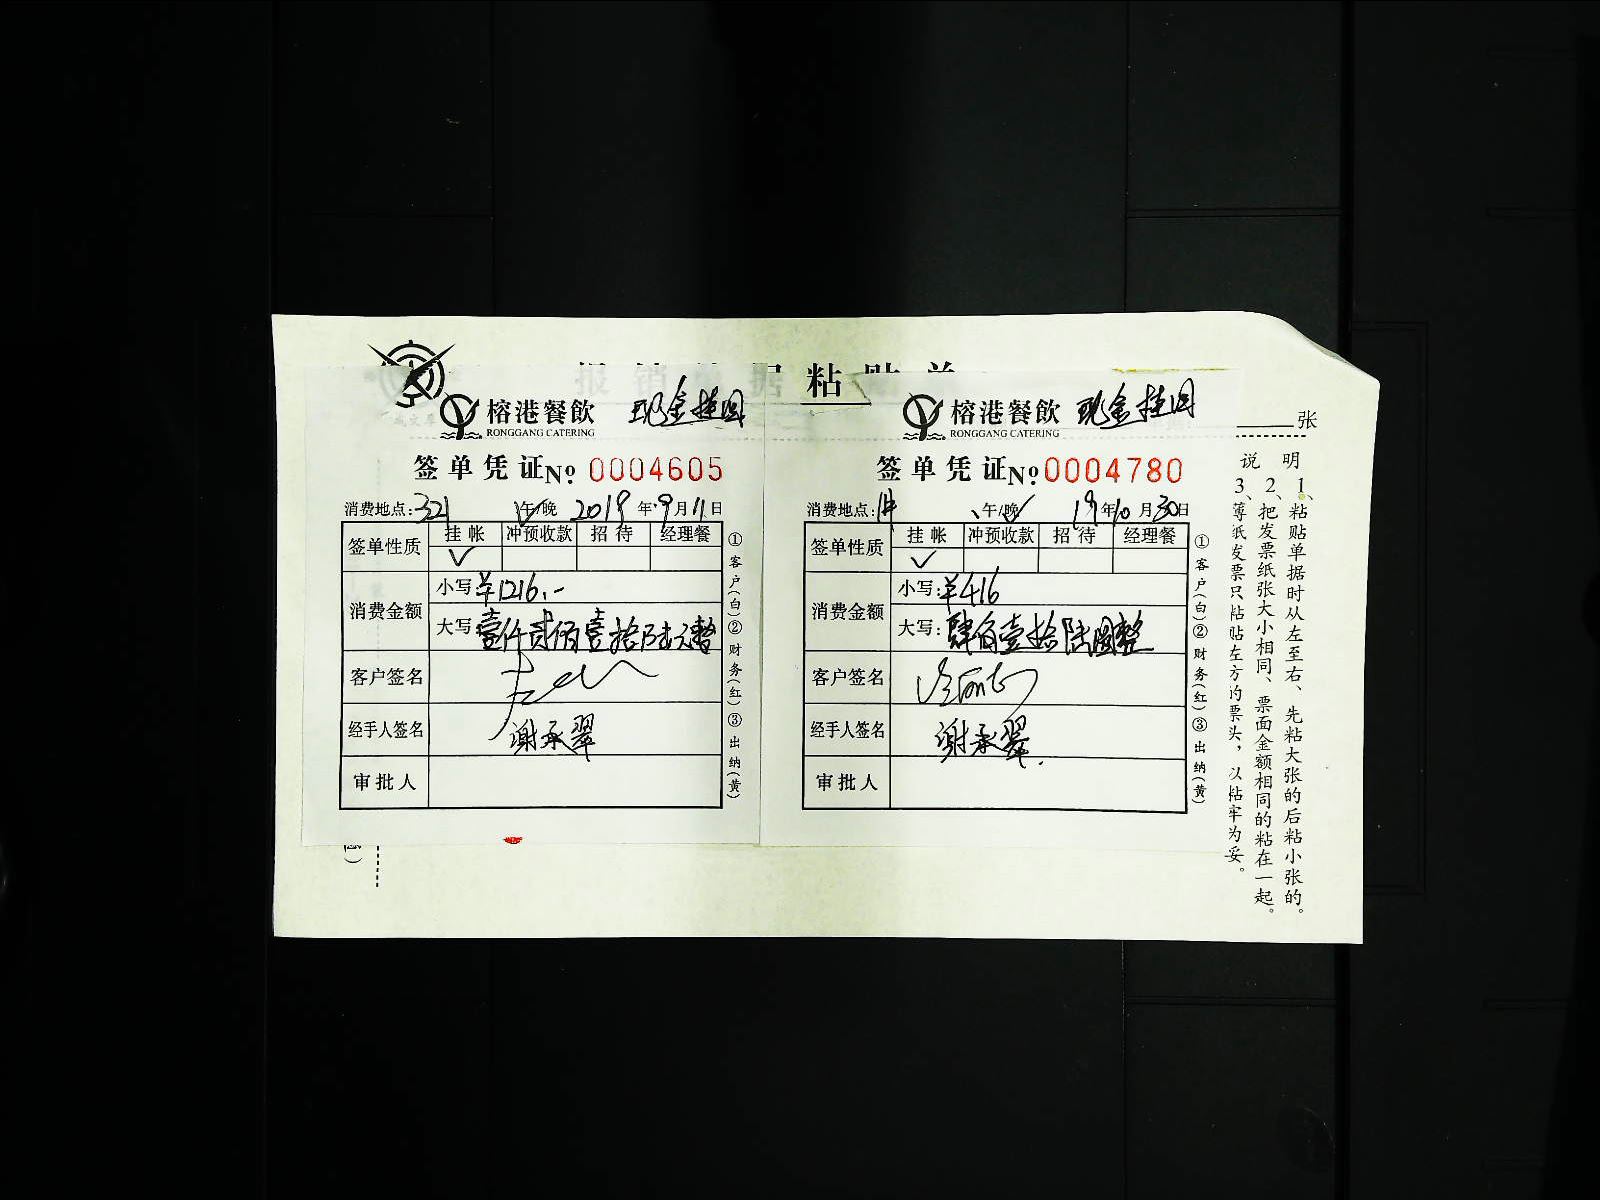 报销 据粘贴单
榕港餐飲 现金挂回
RONGGANG CATERING
签单凭证No 0004605
消费地点:321 午/晚 2019年9月11日
签单性质 挂帐 冲预收款 招待 经理餐
✓
消费金额 小写:¥1216.-
大写:壹仟贰佰壹拾陆元整
客户签名
经手人签名 谢承翠
审批人
①客户(白)②财务(红)③出纳(黄)
榕港餐飲 现金挂回
RONGGANG CATERING
签单凭证No 0004780
消费地点: 午/晚 19年10月30日
签单性质 挂帐 冲预收款 招待 经理餐
✓
消费金额 小写:¥416
大写:肆佰壹拾陆圆整
客户签名
经手人签名 谢承翠.
审批人
①客户(白)②财务(红)③出纳(黄)
张
说明
1、粘贴单据时从左至右、先粘大张的后粘小张的。
2、把发票纸张大小相同、票面金额相同的粘在一起。
3、薄纸发票只粘贴左方的票头，以粘牢为妥。